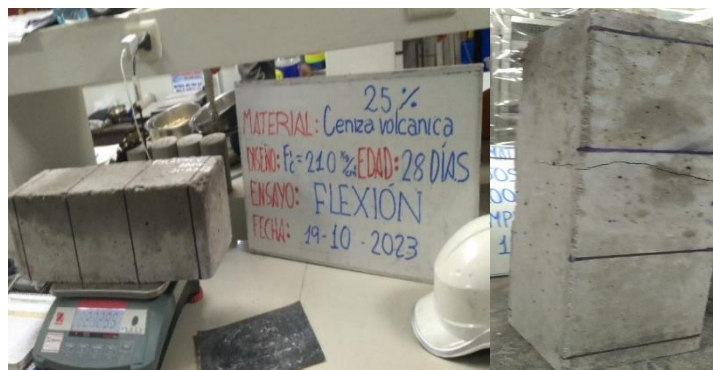 25%
MATERIAL: Ceniza volcanica
DISEÑO: F'c=210 kg/cm² EDAD: 28 DÍAS
ENSAYO: FLEXIÓN
FECHA: 19-10-2023